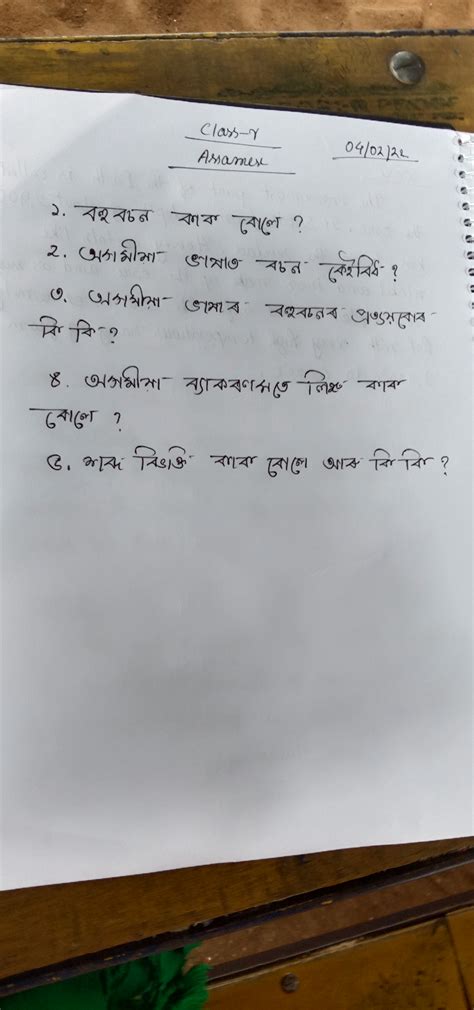 Class-V
Assamese
04/02/22
১. বহুবচন কাক বোলে ?
২. অসমীয়া ভাষাত বচন কেইবিধ ?
৩. অসমীয়া ভাষাৰ বহুবচনৰ প্ৰত্যয়বোৰ
কি কি ?
৪. অসমীয়া ব্যাকৰণমতে লিঙ্গ কাক
বোলে ?
৫. শব্দ বিভক্তি কাক বোলে আৰু কি কি ?